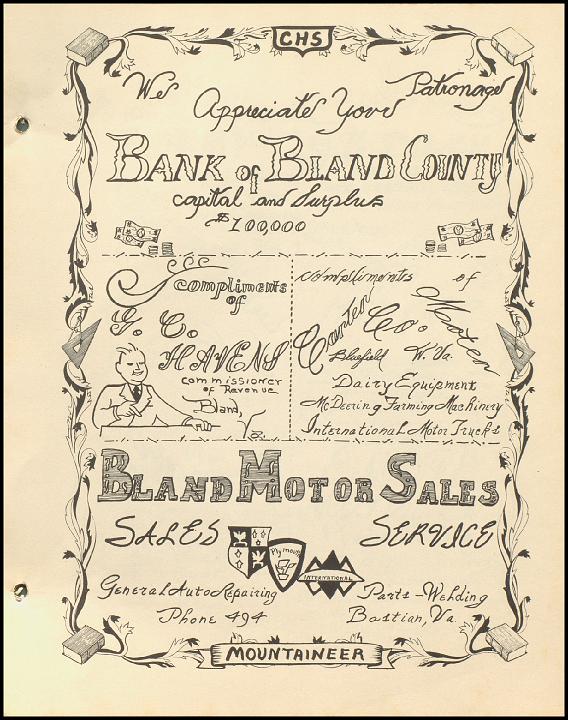 CHS
We Appreciate Your Patronage
BANK of BLAND COUNTY
capital and Surplus
$100,000
Compliments
of
G. C.
HAVENS
Commissioner
of Revenue
Bland, Va.
Compliments of
Carter Motor
Co.
Bluefield W. Va.
Dairy Equipment
McDeering Farming Machinery
International Motor Trucks
BLAND MOTOR SALES
SALES SERVICE
Plymouth
INTERNATIONAL
General Auto Repairing Parts-Welding
Phone 494 Bastian, Va.
MOUNTAINEER